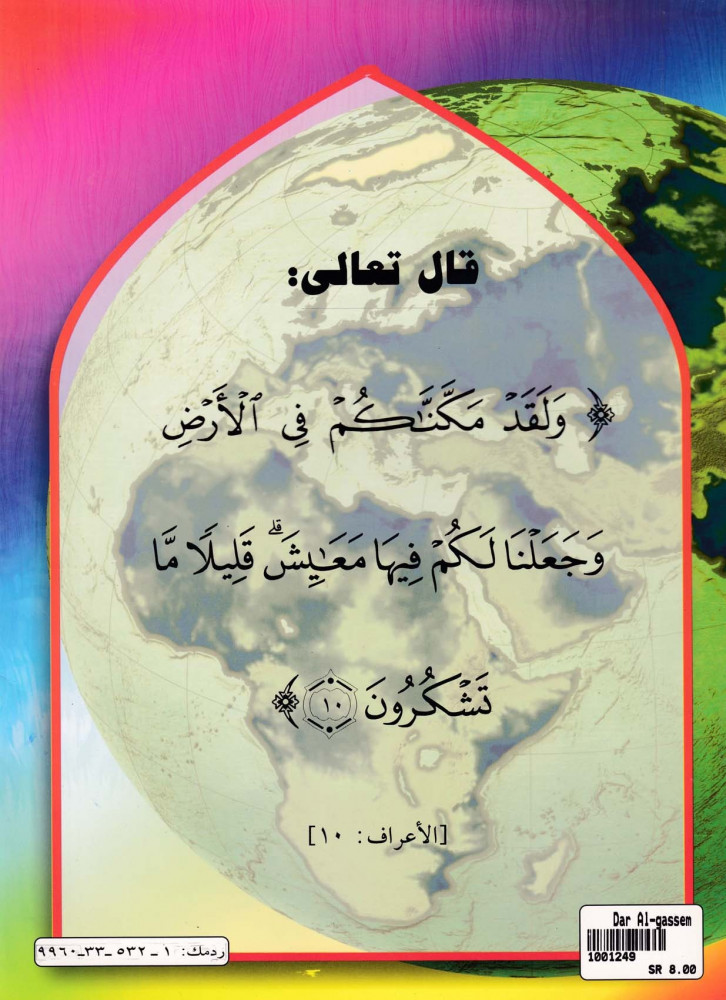 قال تعالى:
﴿ وَلَقَدْ مَكَّنَّٰكُمْ فِى ٱلْأَرْضِ
وَجَعَلْنَا لَكُمْ فِيهَا مَعَٰيِشَ ۗ قَلِيلًا مَّا
تَشْكُرُونَ ١٠ ﴾
[الأعراف: ١٠]
ردمك: ١ ـ ٥٣٢ ـ ٣٣ـ ٩٩٦٠
Dar Al-gassem
1001249
SR 8.00